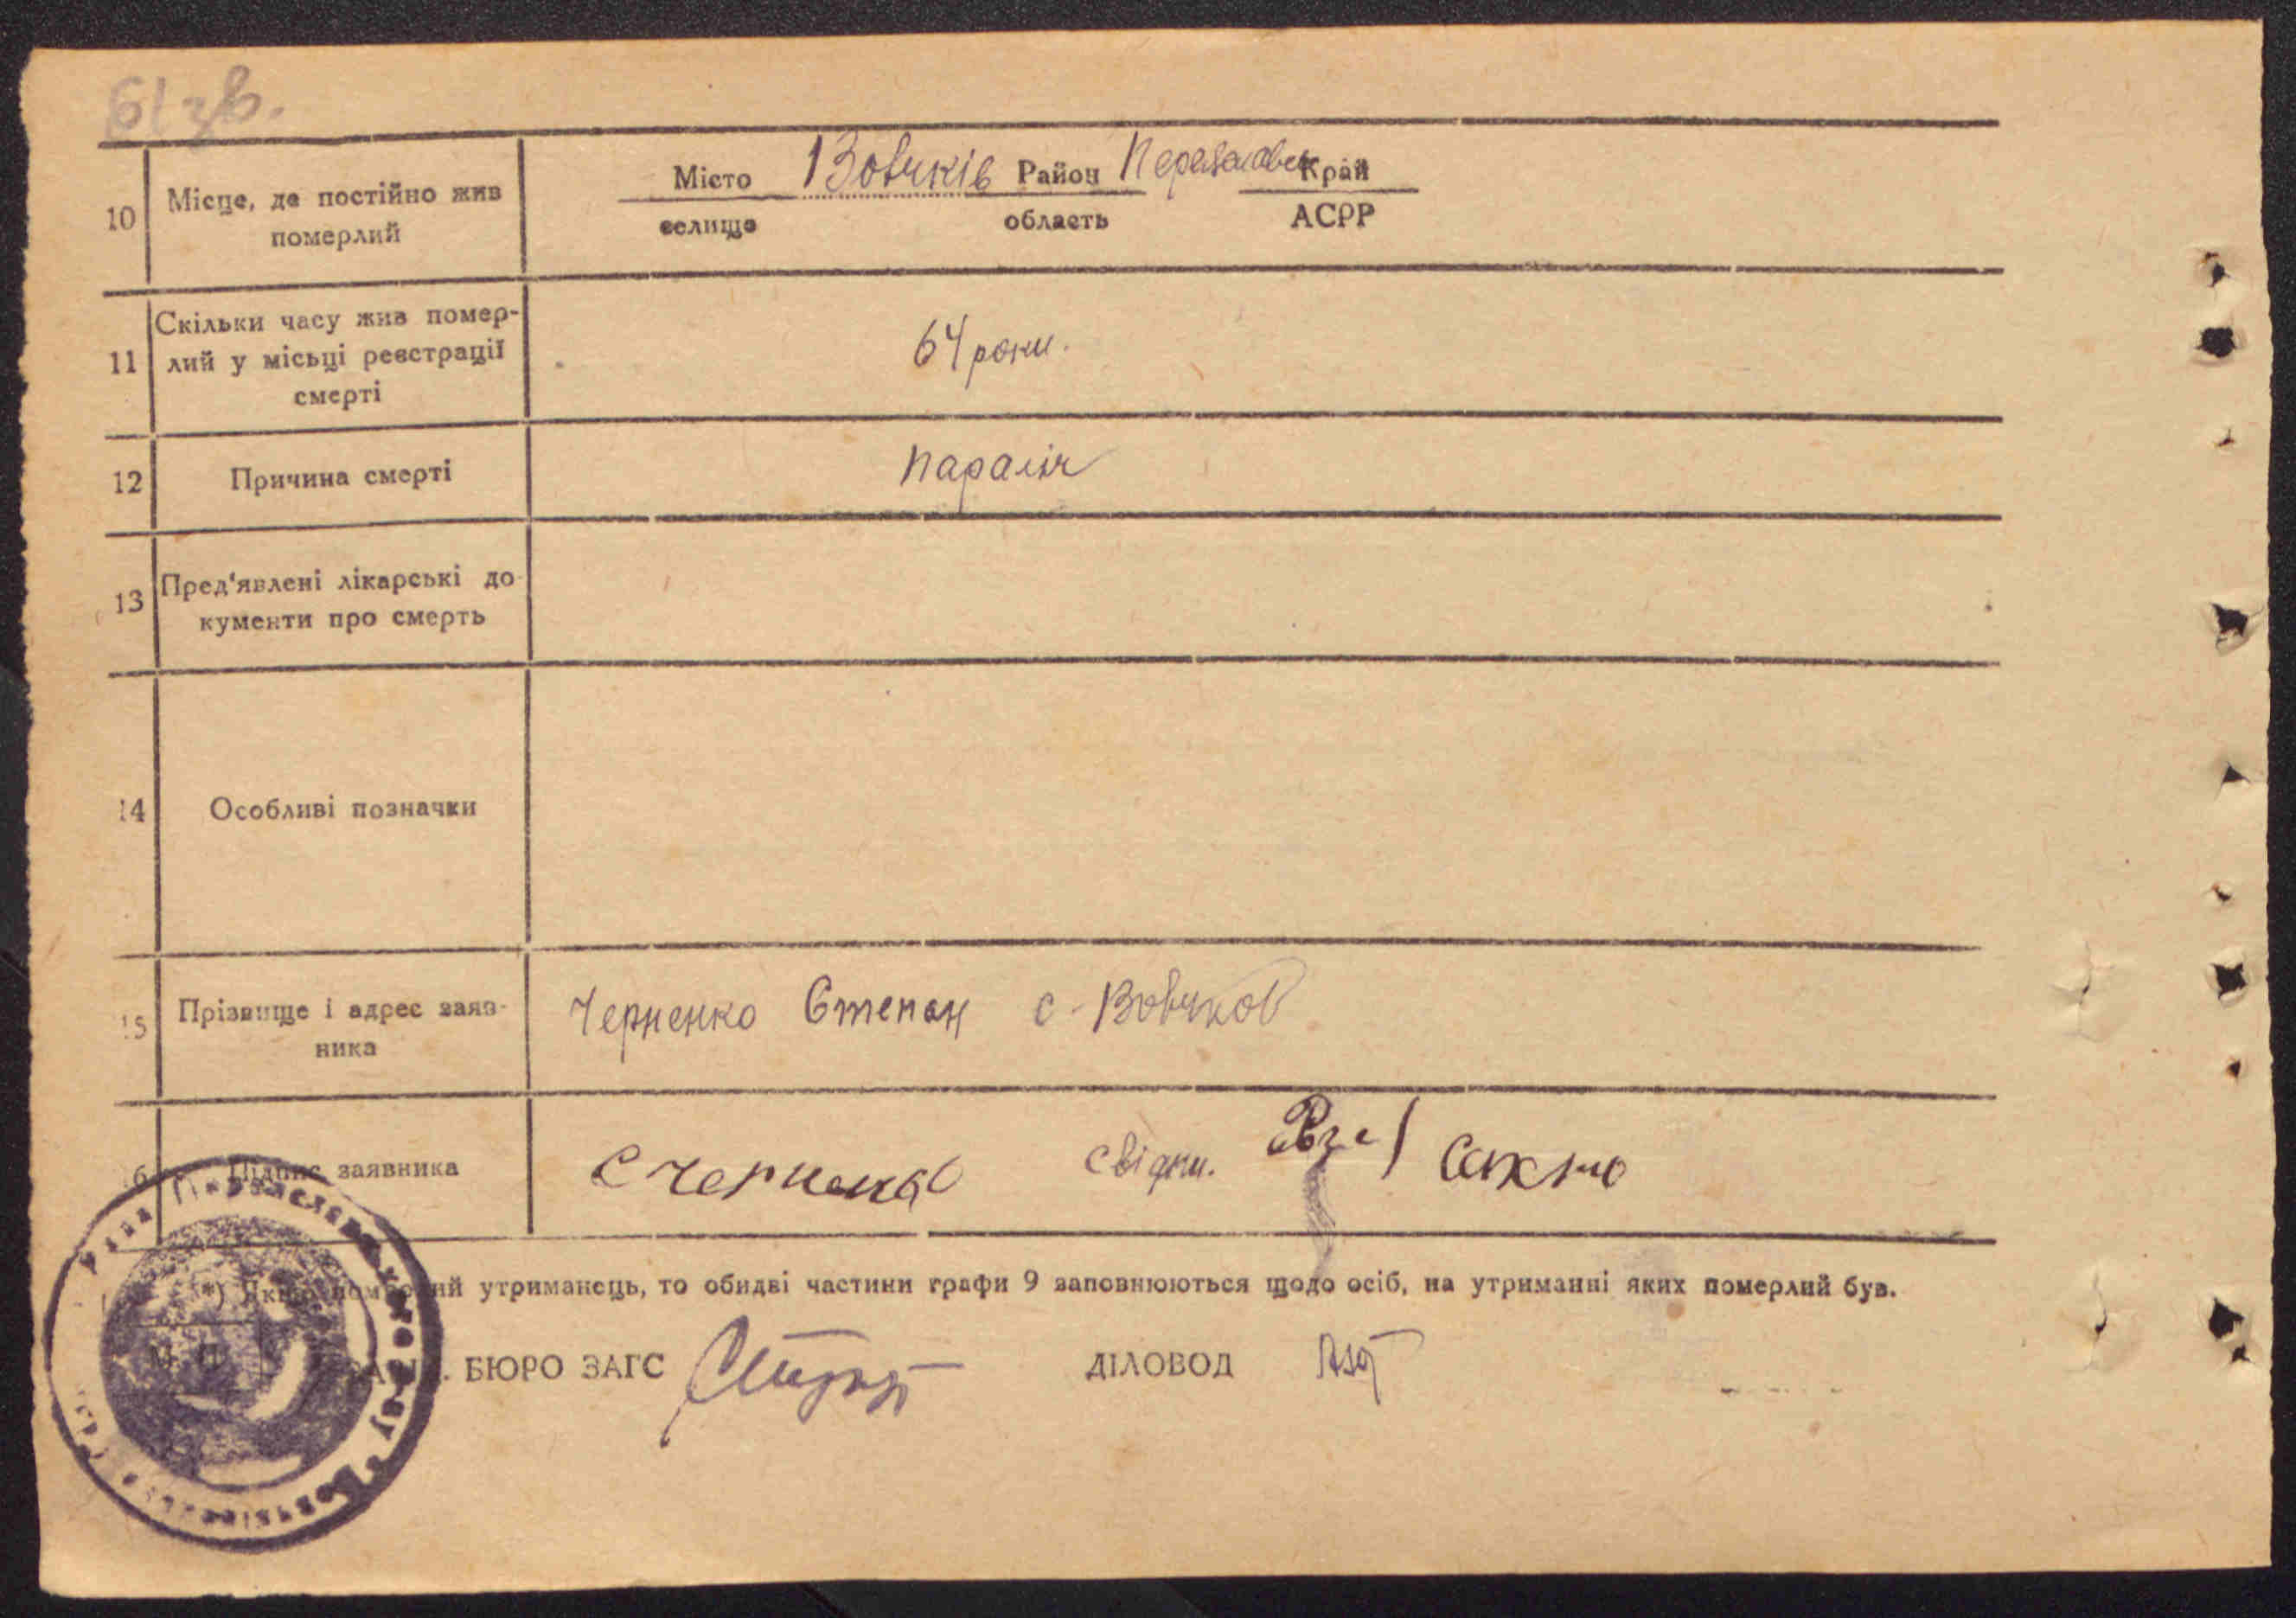 61зв.
10 Місце, де постійно жив померлий
Місто Вовчків Район Переяславськ Край
селище область АСРР
11 Скільки часу жив помер-
лий у місьці реєстрації
смерті
64 роки.
12 Причина смерті параліч
13 Пред'явлені лікарські до
кументи про смерть
14 Особливі позначки
15 Прізвище і адрес заяв-
ника
Черненко Степан с. Вовчков
16 Підпис заявника
С Черненко свідки.
*) Якщо померлий утриманець, то обидві частини графи 9 заповнюються щодо осіб, на утриманні яких померлий був.
М. П.
БЮРО ЗАГС ДІЛОВОД